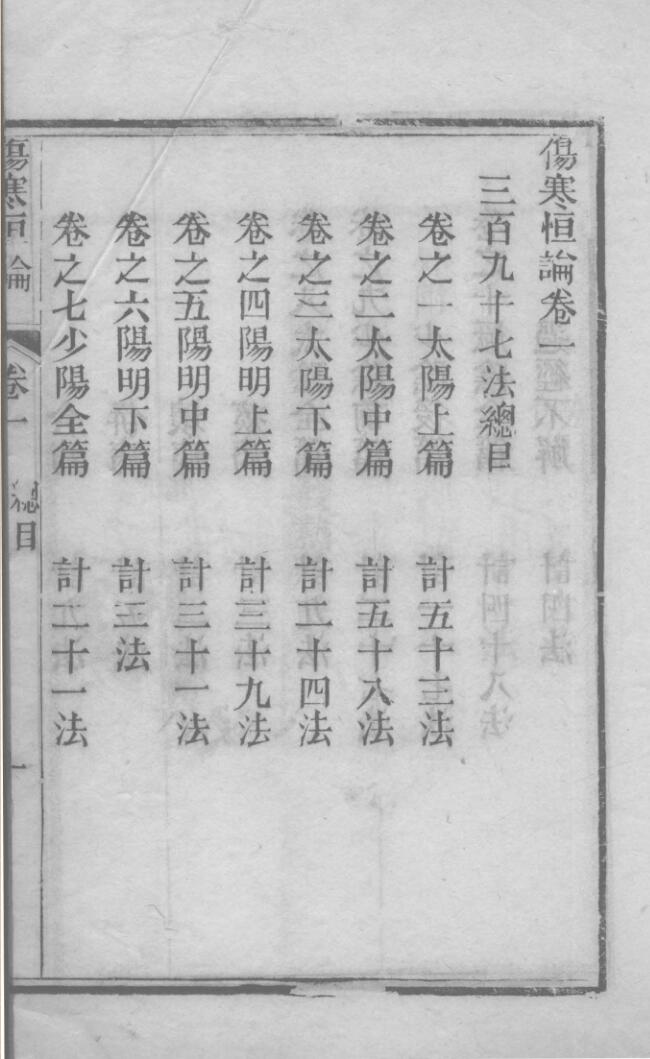 傷寒恒論卷一
三百九十七法總目
卷之一太陽上篇 計五十三法
卷之二太陽中篇 計五十八法
卷之三太陽下篇 計二十四法
卷之四陽明上篇 計三十九法
卷之五陽明中篇 計三十一法
卷之六陽明下篇 計三法
卷之七少陽全篇 計二十一法
傷寒恒論 卷一 總目 一